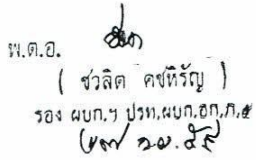 พ.ต.อ.
( ชวลิต คชหิรัญ )
รอง ผบก.ฯ ปรท.ผบก.อก.ภ.๕